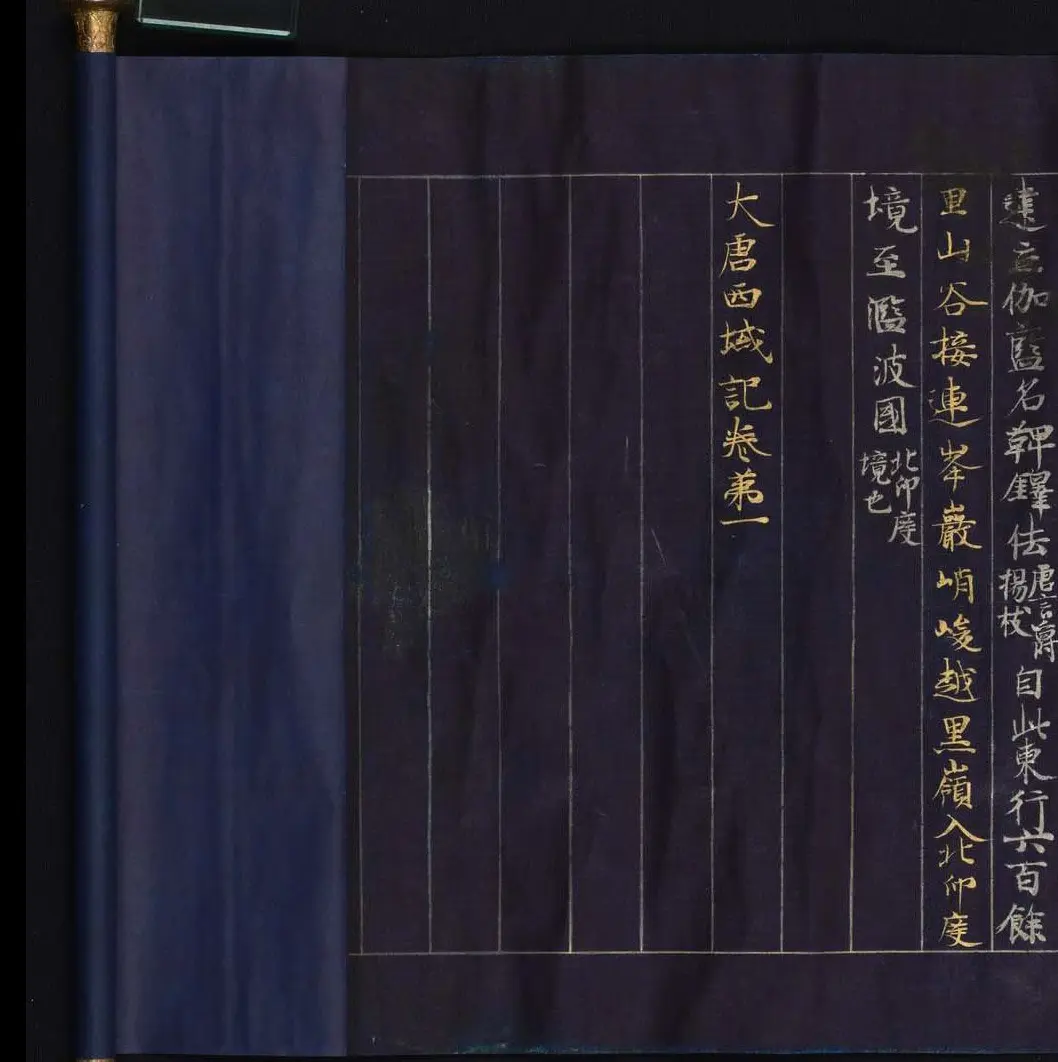 遠立伽藍名鞞鐸佉唐言嚼楊枝自此東行六百餘
里山谷接連峯巖峭峻越黑嶺入北印度
境至濫波國北印度境也
大唐西域記卷第一